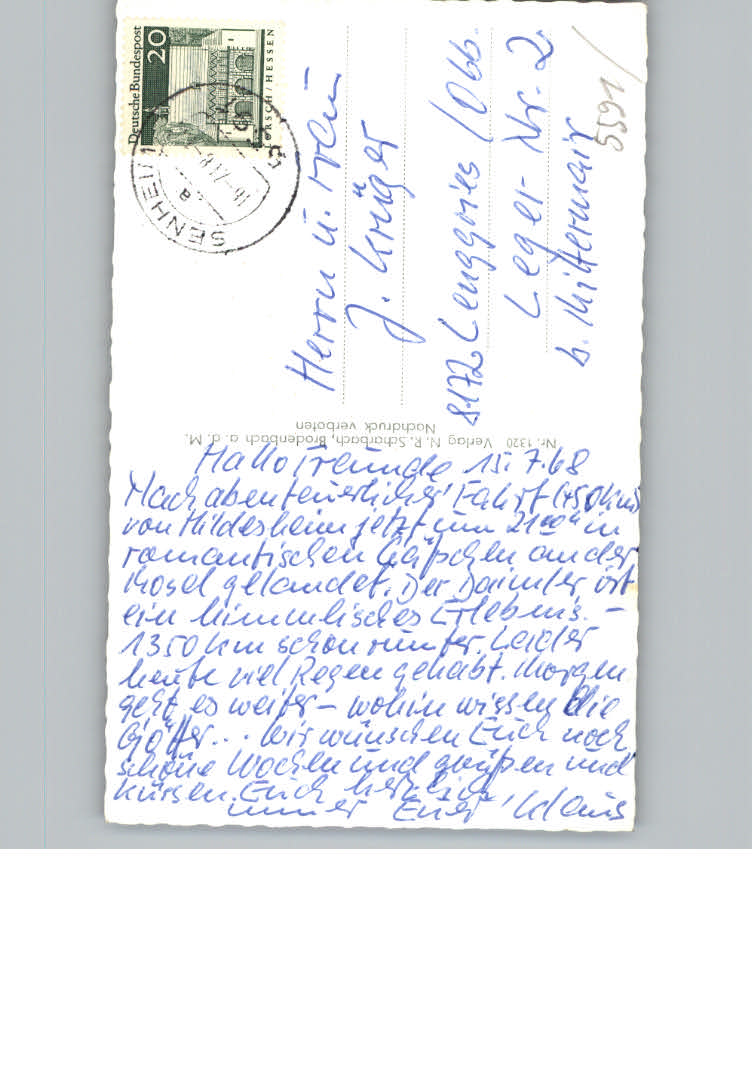 Deutsche Bundespost
20
LORSCH / HESSEN
SENHEIM
a
Herrn u. Frau
J. Krüger
8172 Lenggries / Obb.
Leger- Nr. 2
b. Mittermair
5591/
Nr. 1320 Verlag N. R. Scharbach, Brodenbach a. d. M.
Nachdruck verboten
Hallo Freunde 15.7.68
Nach abenteuerlicher Fahrt (450 km)
von Hildesheim jetzt um 21 00 h in
romantischen Gäßchen an der
Mosel gelandet. Der Daimler ist
ein himmlisches Erlebnis. –
1350 km schon runter. Leider
heute viel Regen gehabt. Morgen
geht es weiter – wohin wissen die
Götter... Wir wünschen Euch noch
schöne Wochen und grüßen und
küssen Euch herzlich
immer Euer Klaus